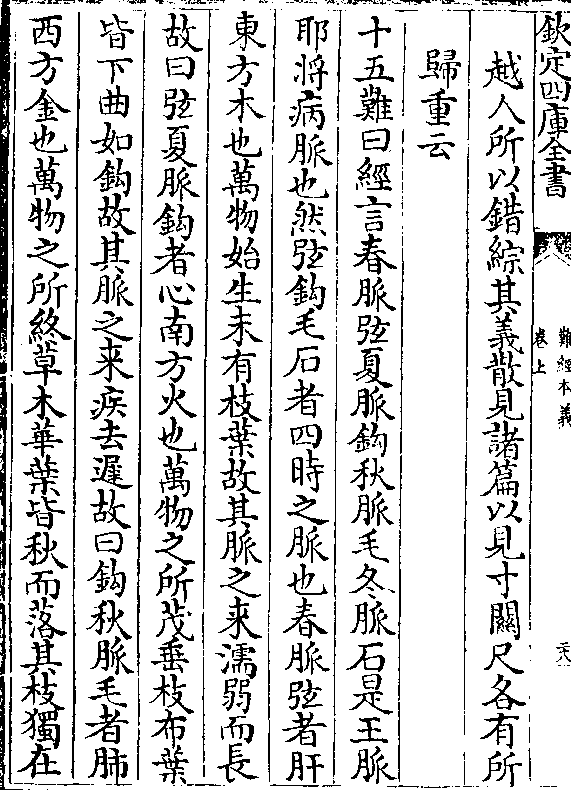 欽定四庫全書
難經本義
卷上
六
越人所以錯綜其義散見諸篇以見寸關尺各有所
歸重云
十五難曰經言春脈弦夏脈鈎秋脈毛冬脈石是王脈
耶將病脈也然弦鈎毛石者四時之脈也春脈弦者肝
東方木也萬物始生未有枝葉故其脈之来濡弱而長
故曰弦夏脈鈎者心南方火也萬物之所茂垂枝布葉
皆下曲如鈎故其脈之来疾去遲故曰鈎秋脈毛者肺
西方金也萬物之所終草木華葉皆秋而落其枝獨在